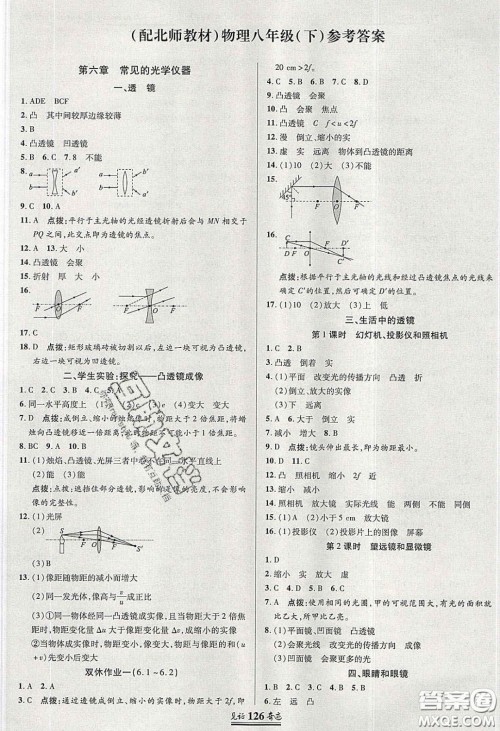 (配北师教材)物理八年级(下)参考答案
第六章 常见的光学仪器
一、透 镜
1. ADE BCF
2. 凸 其中间较厚边缘较薄
3. B
4. 凸透镜 凹透镜
5. B 6. C 7. 8 不能
8.
9. C 10. A
11. A 点拨:平行于主光轴的光经透镜折射后会与 MN 相交于
PQ 之间,此交点即为透镜的焦点。
12. A 13. 大 小
14. 凸透镜
15. 折射 厚 大 小
16.
17. C
18. D 点拨:矩形玻璃砖被切割以后,形成两个凸透镜、一个凹
透镜。
二、学生实验:探究——凸透镜成像
1. C 2. A 3. C 4. B 5. C
6. 同一水平高度上 (1)变大 (2)变大
7. D 点拨:成倒立、缩小的实像时,物距大于2倍焦距,将蜡
烛向凸透镜方向移动,物距减小,像距增大,像变大。
8. BC 9. A 10. A
11. (1)烛焰、凸透镜、光屏三者中心不在同一水平直线上
(2)不能
点拨:遮挡住部分透镜,影响的是像的亮度,不会影响像
的完整性。
12. (1)光屏
(2)
13. (1)像距随物距的减小而增大
(2)同一发光体,像的高度与 v/u 成正比
(3)①同一物体经同一凸透镜成实像,当物距大于 2 倍
焦距时,物距减小量 Δu 大于像距增大量 Δv,成缩小的实像
②同一物体经同一凸透镜成实像时,物体和像之间的距
离先变小后变大
双休作业一(6.1~6.2)
1. C 点拨:通过透镜成倒立、缩小的实像时,物距大于
20 cm>2f。
2. C 3. B 4. C 5. B 6. D 7. B 8. D 9. A
10. 凸 会聚 焦点
11. 凸透镜 C f<u<2f
12. 漫 倒立、缩小的实
13. 虚 实 远离 物体到凸透镜的距离
14. (1)10 (2)大 (3)不能
15.
16.
点拨:根据平行于主光轴的光线和经过凸透镜焦点的光线来
确定 C 的像点。
17. (1)10 会聚 (2)放大 上 (3)B
三、生活中的透镜
第1课时 幻灯机、投影仪和照相机
1. C
2. 凸透 倒着 实
3. (1)平面 改变光的传播方向 凸透 折
(2)倒立 放大 实
4. C
5. (1)平面镜 改变光的传播方向
(2)倒立、放大的实像
(3)下 远离
6. B
7. 减小 增大
8. D
9. D 点拨:镜头伸出最长,示镜头的像距最大。
10. D 11. D
12. 凸 照相机 缩小 2f 小
13. 照相机 放大镜 实际光线 能 倒立 两 放大
14. 实 倒立、缩小 小于 5 cm 放大镜
15. A
16. (1)投影仪 (2)投影片上的图像 屏幕
第2课时 望远镜和显微镜
1. D
2. 缩小 实 放大 虚
3. A 4. D 5. A 6. C
7. A 点拨:使用相同的光圈,A可观测的范围大,有利于看清
现象。
8. (1)平面镜、凹面镜 (2)凸透镜
9. 会聚 实 虚
10. (1)平面镜、凹面镜 凸透镜
(2)会聚
四、眼睛和眼镜
1. C
126